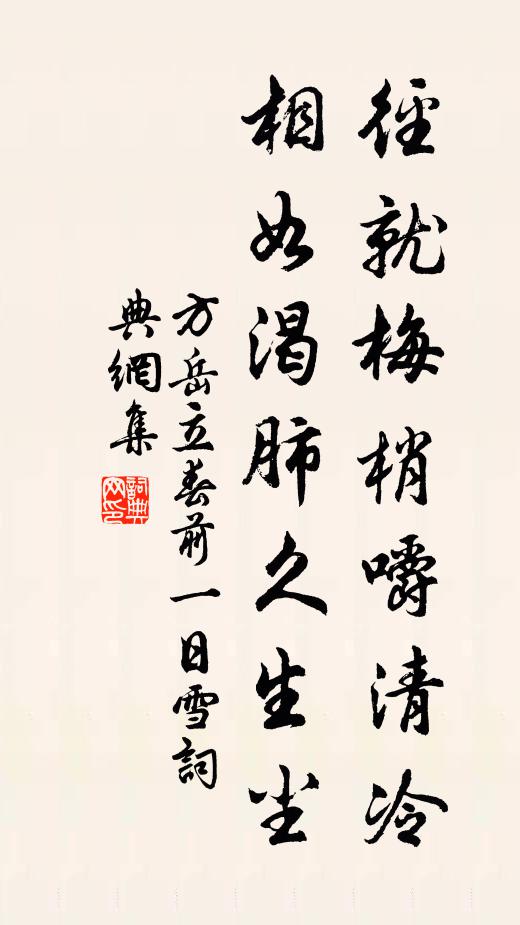 徑就梅梢嚼清冷
相如渴肺久生尘
方岳立春前一日雪詞
典網集
詞典
网印